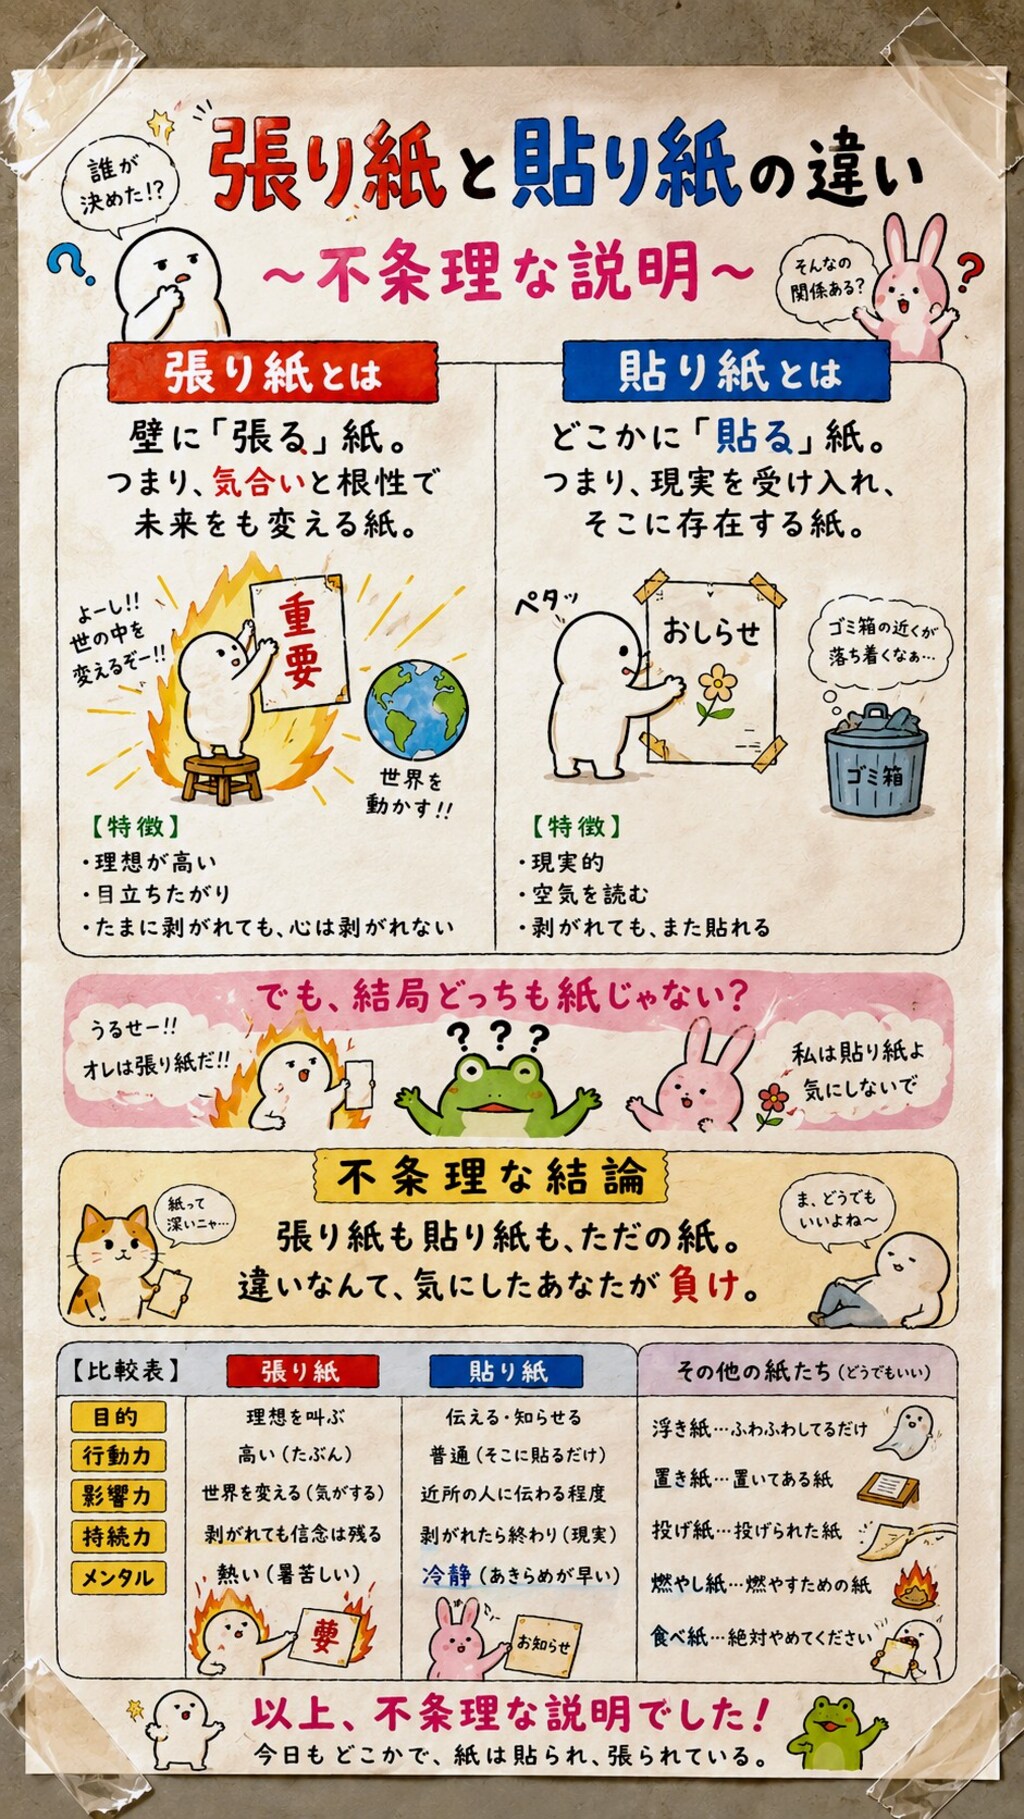 誰が
決めた!?
張り紙と貼り紙の違い
～不条理な説明～
そんなの
関係ある?
張り紙とは
壁に「張る」紙。
つまり、気合いと根性で
未来をも変える紙。
よーし!!
世の中を
変えるぞー!!
重要
世界を
動かす!!
【特徴】
・理想が高い
・目立ちたがり
・たまに剥がれても、心は剥がれない
貼り紙とは
どこかに「貼る」紙。
つまり、現実を受け入れ、
そこに存在する紙。
ペタッ
おしらせ
ゴミ箱の近くが
落ち着くなぁ…
ゴミ箱
【特徴】
・現実的
・空気を読む
・剥がれても、また貼れる
でも、結局どっちも紙じゃない?
うるせー!!
オレは張り紙だ!!
? ? ?
私は貼り紙よ
気にしないで
不条理な結論
紙って
深いニャ…
張り紙も貼り紙も、ただの紙。
違いなんて、気にしたあなたが負け。
ま、どうでも
いいよね～
【比較表】 張り紙 貼り紙
目的 理想を叫ぶ 伝える・知らせる
行動力 高い(たぶん) 普通(そこに貼るだけ)
影響力 世界を変える(気がする) 近所の人に伝わる程度
持続力 剥がれても信念は残る 剥がれたら終わり(現実)
メンタル 熱い(暑苦しい) 冷静(あきらめが早い)
お知らせ
その他の紙たち(どうでもいい)
浮き紙…ふわふわしてるだけ
置き紙…置いてある紙
投げ紙…投げられた紙
燃やし紙…燃やすための紙
食べ紙…絶対やめてください
以上、不条理な説明でした!
今日もどこかで、紙は貼られ、張られている。